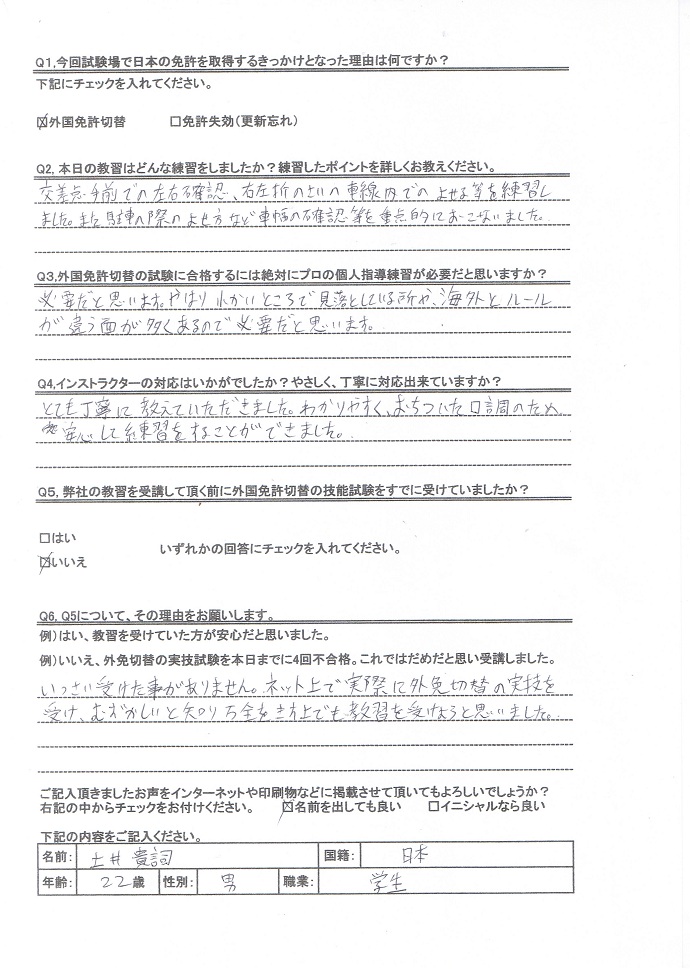 Q1,今回試験場で日本の免許を取得するきっかけとなった理由は何ですか?
下記にチェックを入れてください。
☑外国免許切替 □免許失効(更新忘れ)
Q2, 本日の教習はどんな練習をしましたか?練習したポイントを詳しくお教えください。
交差点手前での左右確認、右左折のさいの車線内でのよせ等を練習し
ました。また駐車の際のよせ方など車幅の確認等を重点的におこないました。
Q3,外国免許切替の試験に合格するには絶対にプロの個人指導練習が必要だと思いますか?
必要だと思います。やはり小かいところで見落としている所や、海外とルール
が違う面が多くあるので必要だと思います。
Q4,インストラクターの対応はいかがでしたか?やさしく、丁寧に対応出来ていますか?
とても丁寧に教えていただきました。わかりやすく、おちついた口調のため
安心して練習をすることができました。
Q5, 弊社の教習を受講して頂く前に外国免許切替の技能試験をすでに受けていましたか?
□はい
☑いいえ いずれかの回答にチェックを入れてください。
Q6, Q5について、その理由をお願いします。
例)はい、教習を受けていた方が安心だと思いました。
例)いいえ、外免切替の実技試験を本日までに4回不合格。これではだめだと思い受講しました。
いっさい受けた事がありません。ネット上で実際に外免切替の実技を
受け、むずかしいと知り万全をき上でも教習を受けようと思いました。
ご記入頂きましたお声をインターネットや印刷物などに掲載させて頂いてもよろしいでしょうか?
右記の中からチェックをお付けください。 ☑名前を出しても良い □イニシャルなら良い
下記の内容をご記入ください。
名前: 土井 貴詞 国籍: 日本
年齢: 22歳 性別: 男 職業: 学生